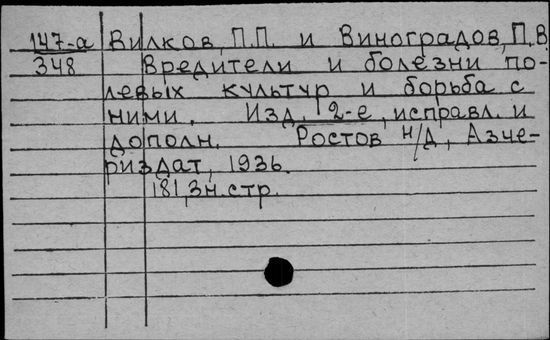 147-а Вилков, П.П. и Виноградов, П.В
348 Вредители и болезни по-
левых культур и борьба с
ними. Изд. 2-е, исправл. и
дополн. Ростов н/Д, Азче-
риздат, 1936.
181,3н.стр.